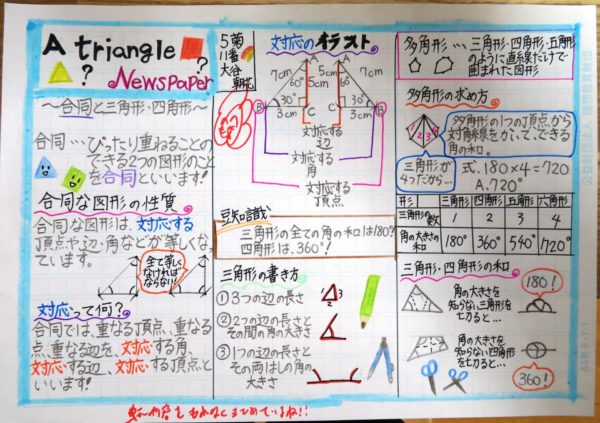 A triangle
Newspaper
5菊
11番
大谷
～合同と三角形・四角形～
合同…ぴったり重ねることの
できる2つの図形のこと
を合同といいます!
合同な図形の性質
合同な図形は、対応する
頂点や辺・角などが等しくな
っています。
全て等しく
なければ
ならない!
対応って何?
合同では、重なる頂点、重なる
点、重なる辺を、対応する角、
対応する辺、対応する頂点と
いいます!
対応のイラスト
A
A
7cm
5cm
5cm
7cm
60°
60°
B
30°
C
C
30°
B
3cm
3cm
対応する
辺
対応する
角
対応する
頂点
豆知識
三角形の全ての角の和は180°!
四角形は、360°!
三角形の書き方
①3つの辺の長さ
②2つの辺の長さと
その間の角の大きさ
③1つの辺の長さと
その両はしの角の
大きさ
1
2
3
多角形…三角形・四角形・五角形
のように直線だけで
囲まれた図形
多角形の求め方
1
2
3
4
多角形の1つの頂点から
対角線をかいて、できる
角の和。
三角形が
4つだから…
式.180×4=720
A.720°
形 三角形 四角形 五角形 六角形
三角形の数 1 2 3 4
角の大きさの和 180° 360° 540° 720°
三角形・四角形の和
角の大きさを
知らない三角形を
切ると…
180!
角の大きさを
知らない四角形
を切ると…
360!